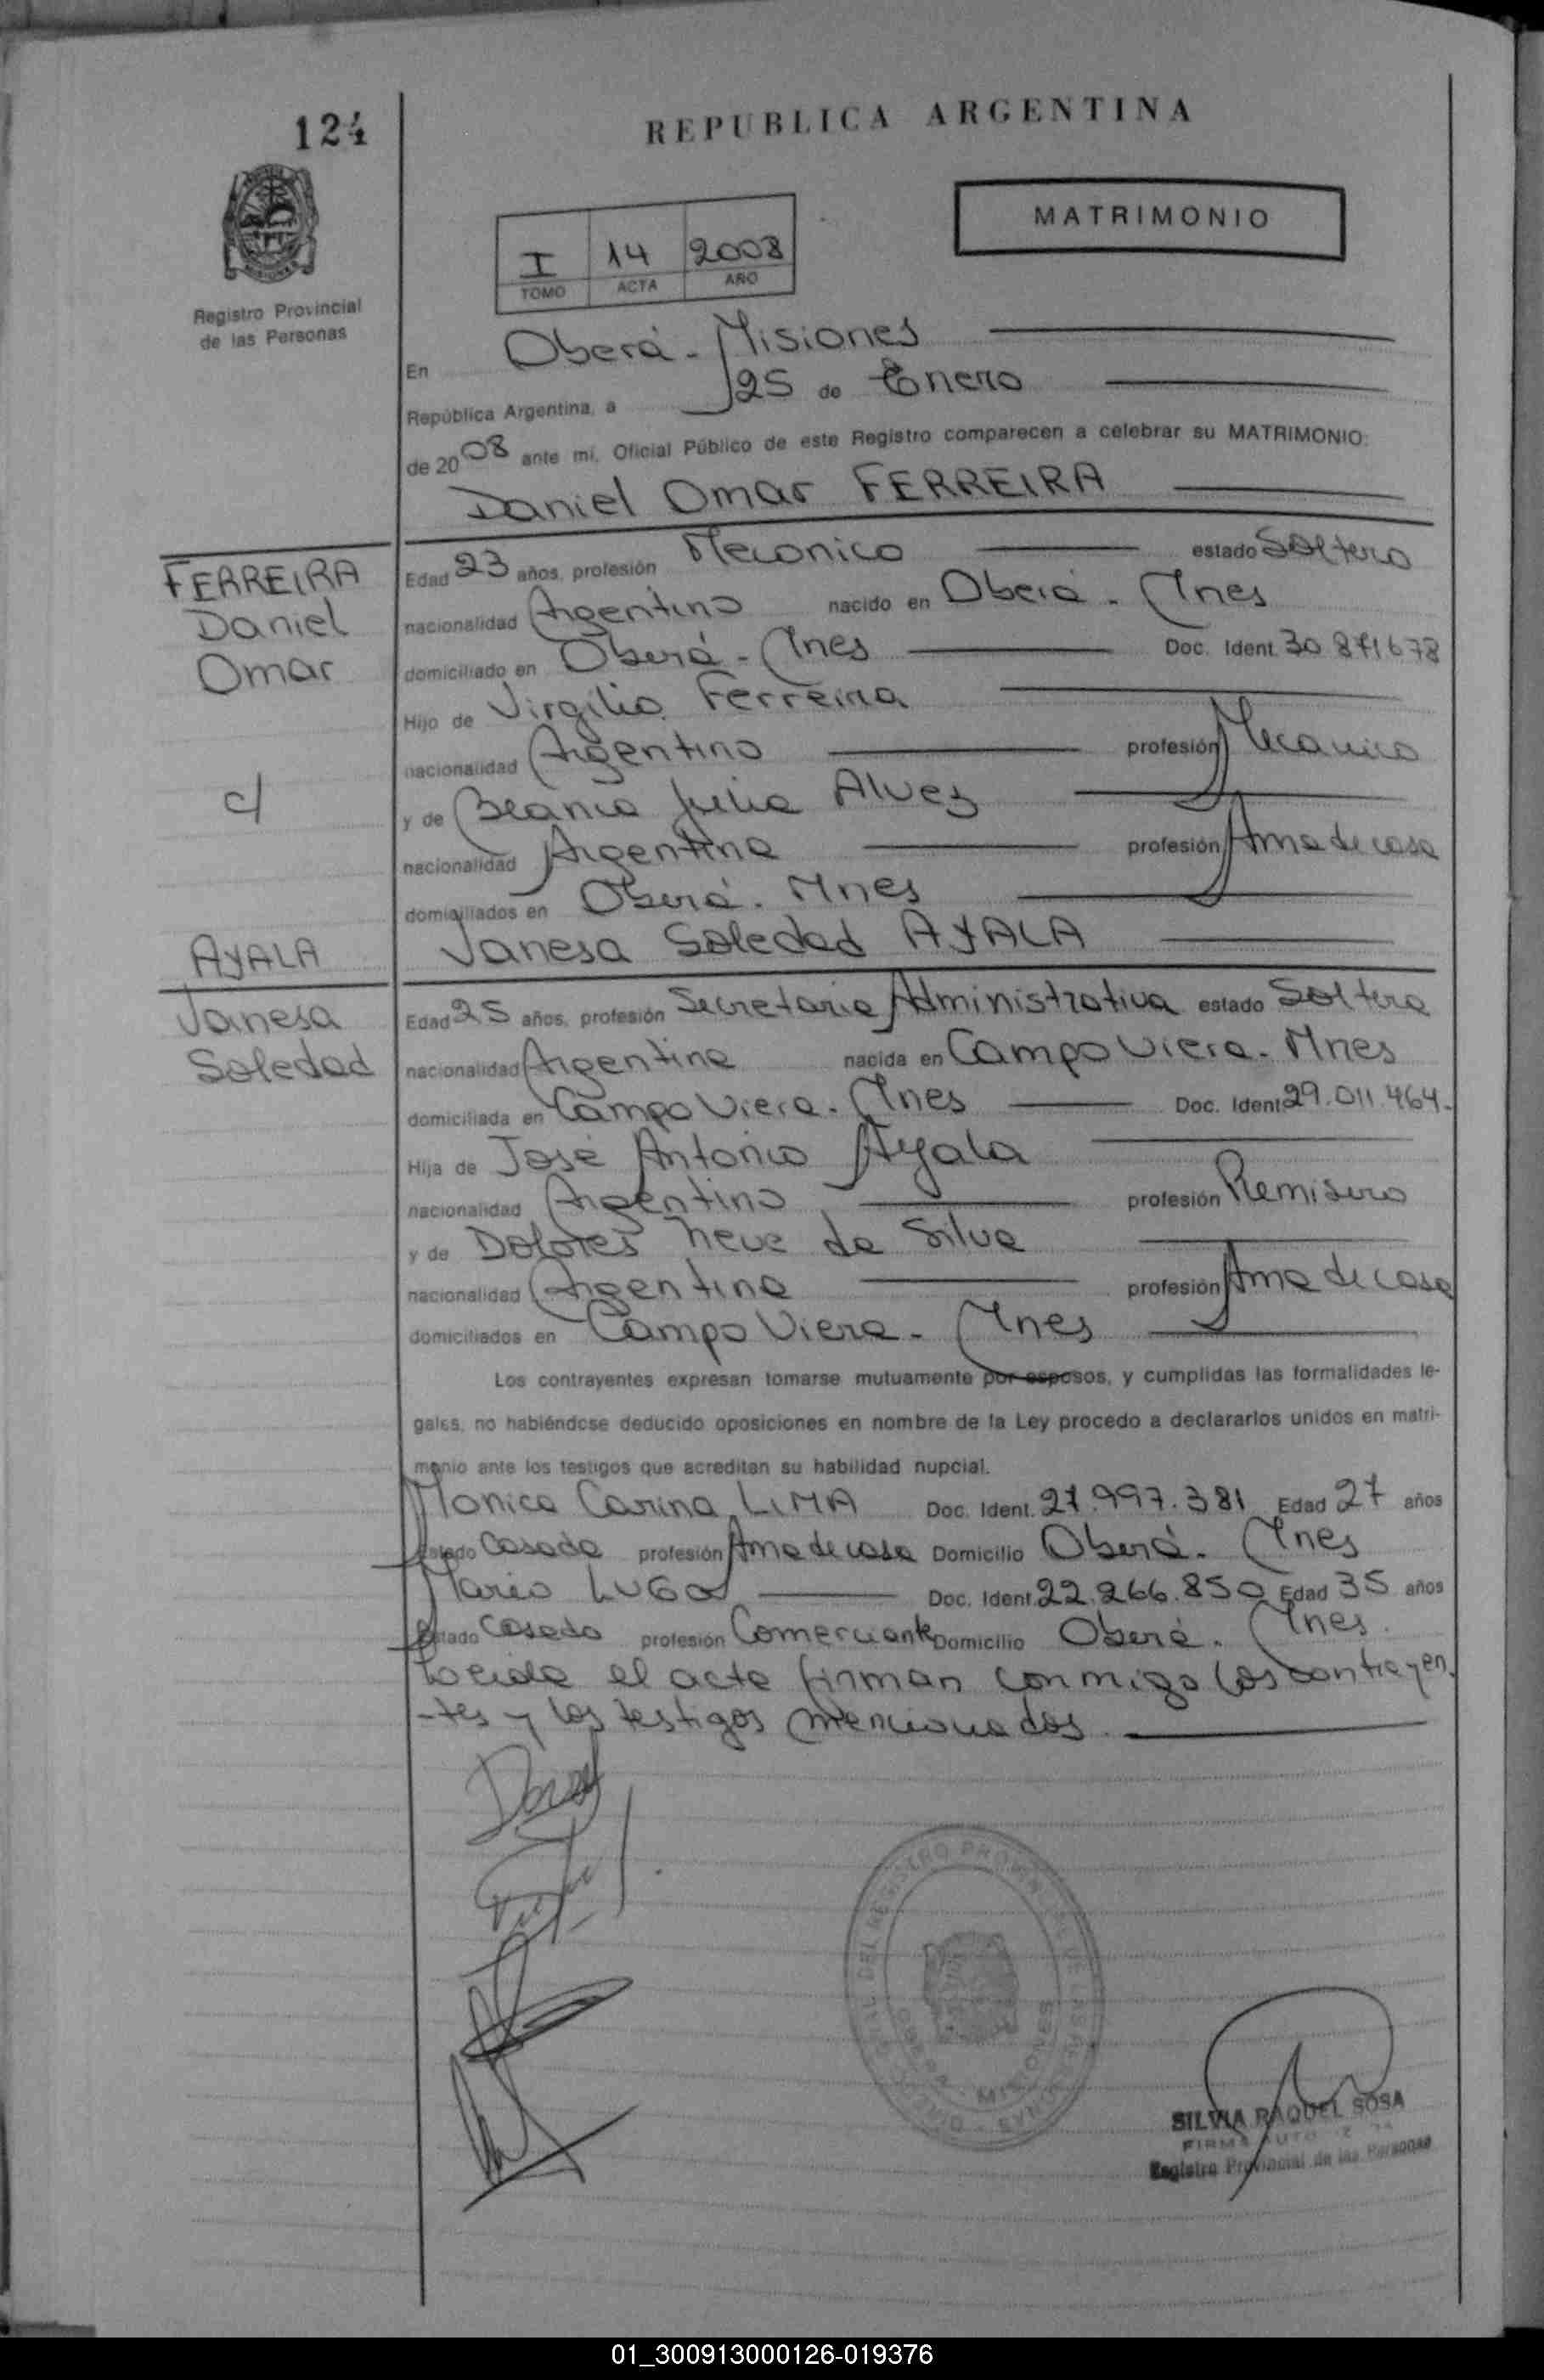 124
REPUBLICA ARGENTINA
MATRIMONIO
I 14 2008
TOMO ACTA AÑO
Registro Provincial
de las Personas
En Oberá - Misiones
República Argentina, a 25 de Enero
de 2008 ante mí, Oficial Público de este Registro comparecen a celebrar su MATRIMONIO:
Daniel Omar FERREIRA
FERREIRA
Daniel
Omar
c/
AYALA
Vanesa
Soledad
Edad 23 años, profesión Mecanico estado Soltero
nacionalidad Argentino nacido en Oberá - Mnes
domiciliado en Oberá - Mnes Doc. Ident. 30.871678
Hijo de Virgilio Ferreira
nacionalidad Argentino profesión Mecanico
y de Blanca Julia Alvez
nacionalidad Argentina profesión Ama de casa
domiciliados en Oberá. Mnes
Vanesa Soledad AYALA
Edad 25 años, profesión Secretaria Administrativa estado Soltera
nacionalidad Argentina nacida en Campo Viera - Mnes
domiciliada en Campo Viera - Mnes Doc. Ident 29.011.464.
Hija de José Antonio Ayala
nacionalidad Argentino profesión Remisero
y de Dolores Neve da Silva
nacionalidad Argentina profesión Ama de casa
domiciliados en Campo Viera - Mnes
Los contrayentes expresan tomarse mutuamente por esposos, y cumplidas las formalidades le-
gales, no habiéndose deducido oposiciones en nombre de la Ley procedo a declararlos unidos en matri-
monio ante los testigos que acreditan su habilidad nupcial.
Monica Carina LIMA Doc. Ident. 27.997.381 Edad 27 años
Estado Casada profesión Ama de casa Domicilio Oberá - Mnes
Mario LUGO Doc. Ident. 22.266.850 Edad 35 años
Estado Casado profesión Comerciante Domicilio Oberá. Mnes.
Leida el acta firman conmigo los contrayen-
-tes y los testigos mencionados.
OBERA - MISIONES
SILVIA RAQUEL SOSA
Registro Provincial de las Personas
01_300913000126-019376